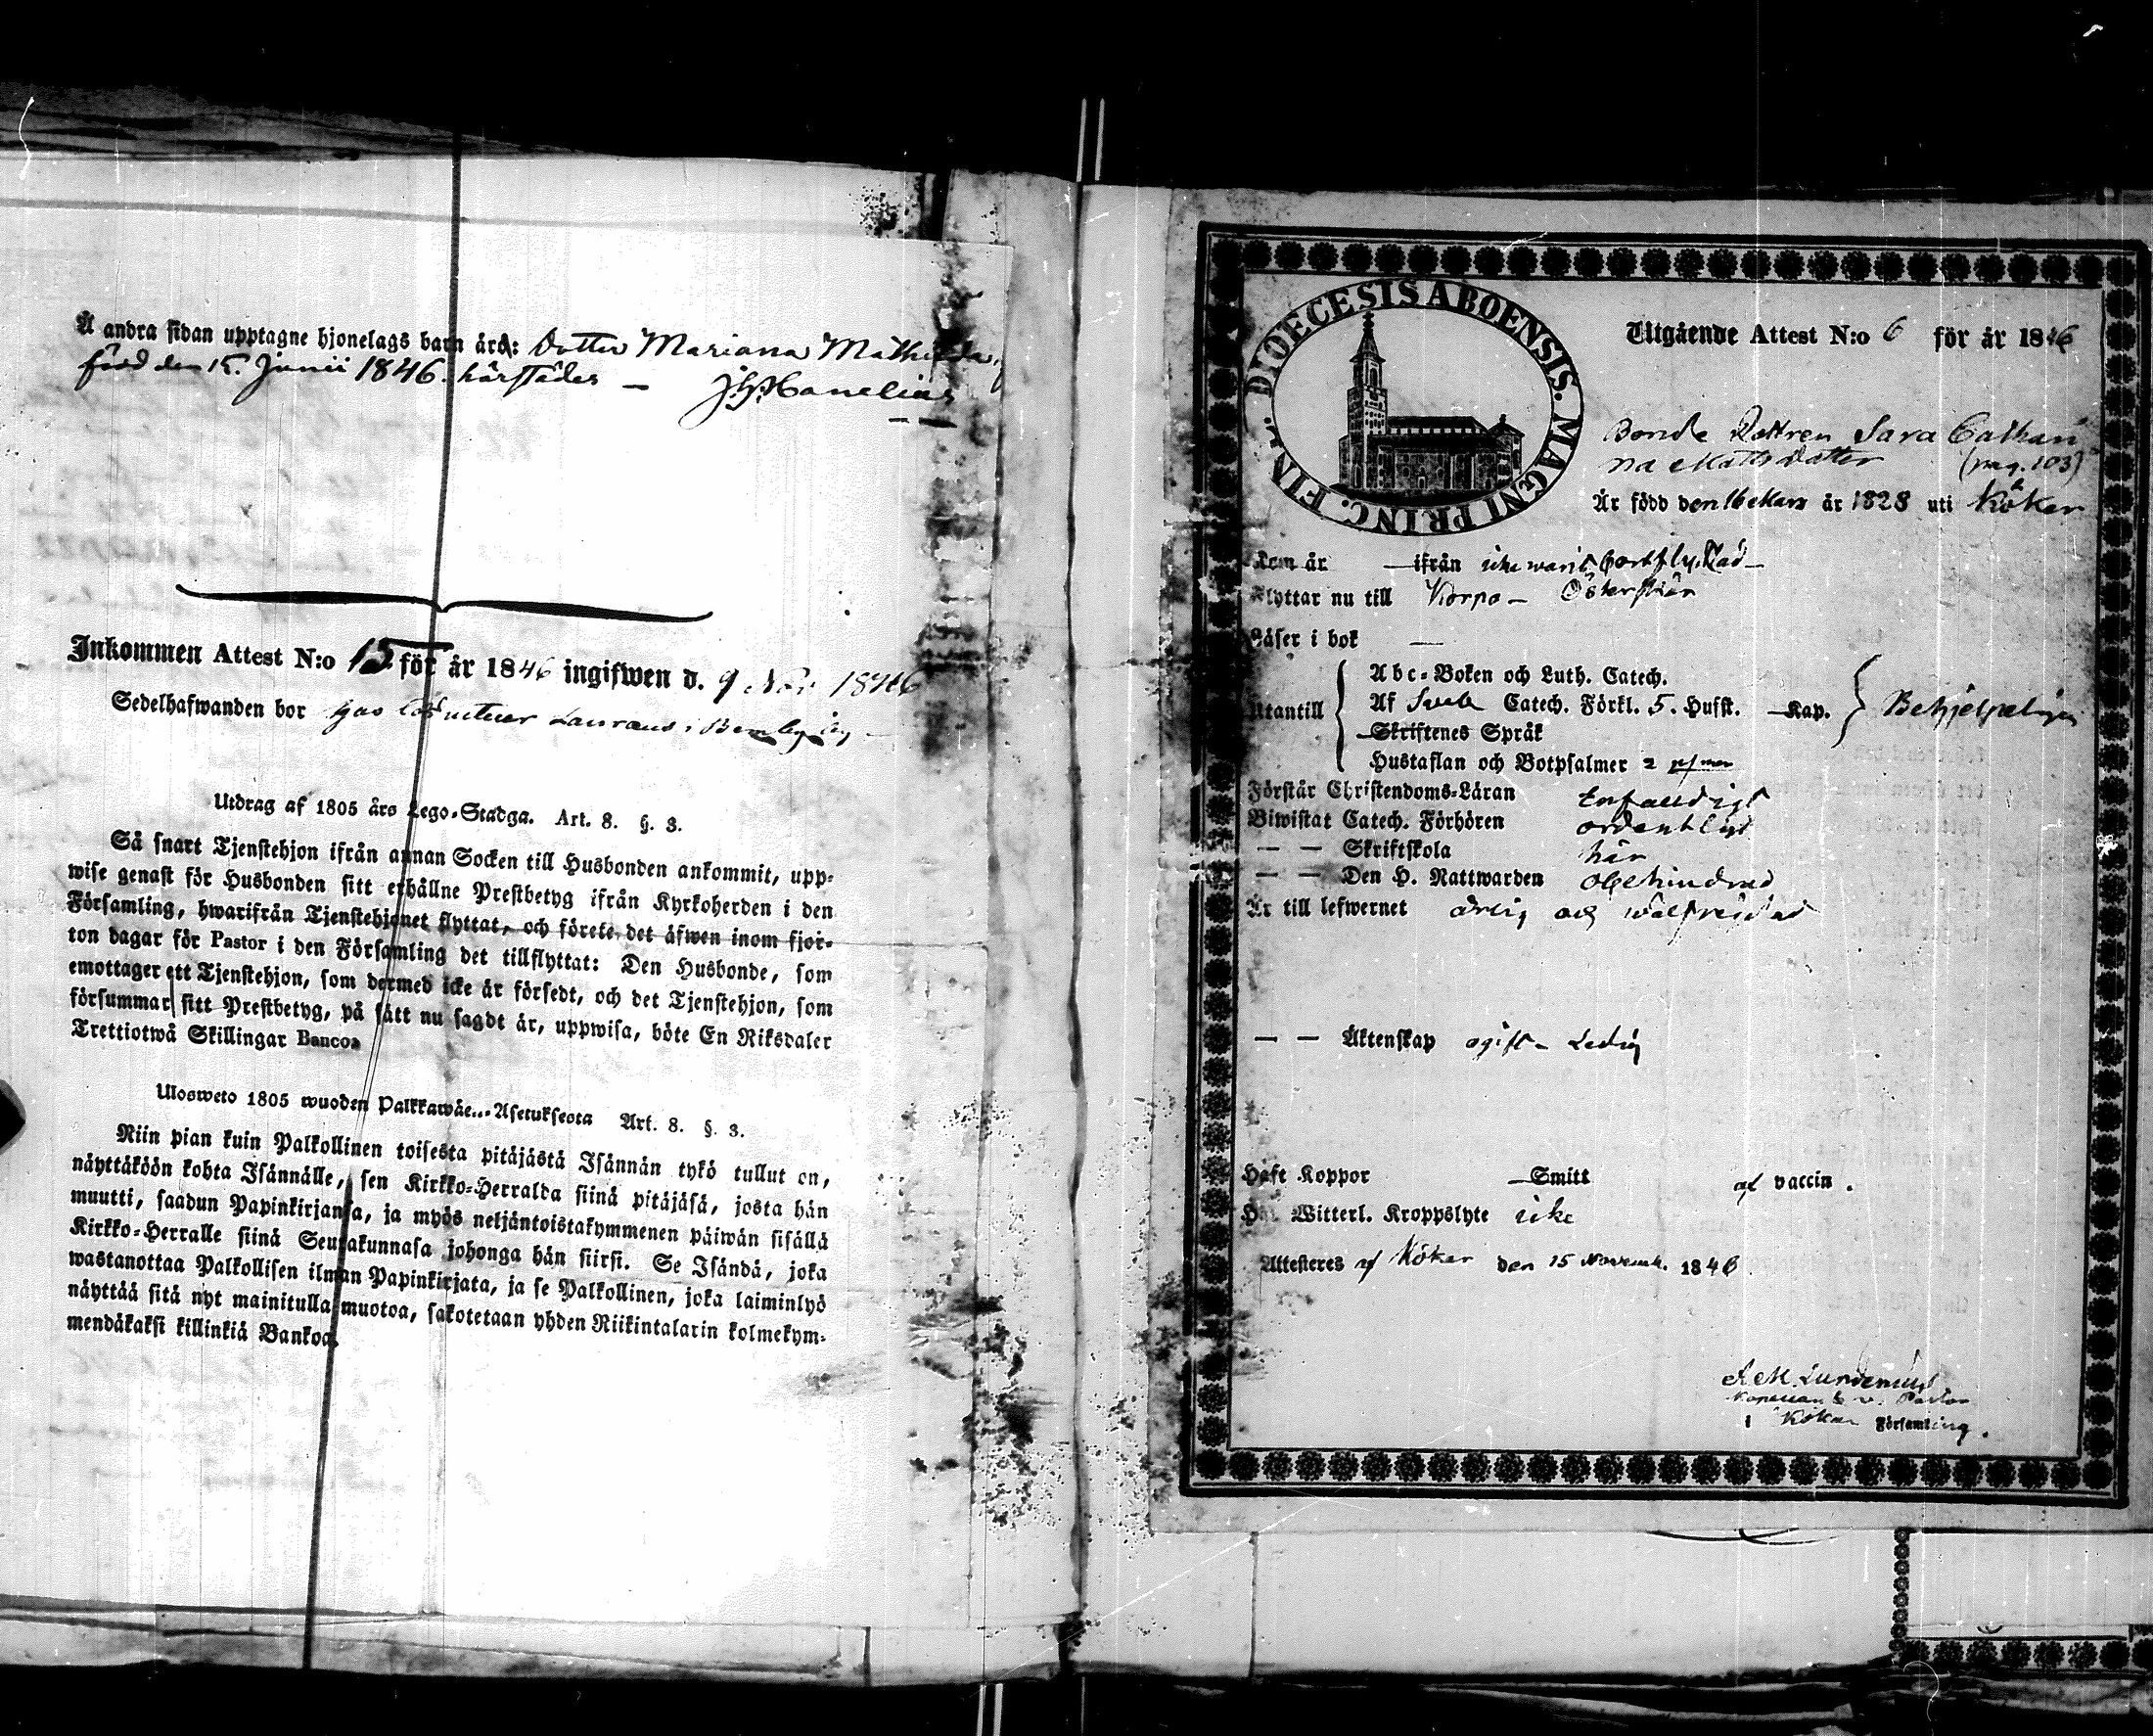 Å andra sidan upptagne hjonelags barn äro: Dotter Mariana Mathilda,
född den 15. Junii 1846. härstädes —
Inkommen Attest N:o 15 för år 1846 ingifwen d. 9 Nov. 1846
Sedelhafwanden bor hos
Utdrag af 1805 års Lego-Stadga. Art. 8. §. 3.
Så snart Tjenstehjon ifrån annan Socken till Husbonden ankommit, upp-
wise genast för Husbonden sitt erhållne Prestbetyg ifrån Kyrkoherden i den
Församling, hwarifrån Tjenstehjonet flyttat, och förete det äfwen inom fjor-
ton dagar för Pastor i den Församling det tillflyttat: Den Husbonde, som
emottager ett Tjenstehjon, som dermed icke är försedt, och det Tjenstehjon, som
försummar sitt Prestbetyg, på sätt nu sagdt är, uppwisa, böte En Riksdaler
Trettiotwå Skillingar Banco.
Ulosweto 1805 wuoden Palkkawäe..-Asetuksesta Art. 8. §. 3.
Niin pian kuin Palkollinen toisesta pitäjästä Isännän tykö tullut on,
näyttäköön kohta Isännälle, sen Kirkko-Herralda siinä pitäjäsä, josta hän
muutti, saadun Papinkirjansa, ja myös neljäntoistakymmenen päiwän sisällä
Kirkko-Herralle siinä Seurakunnasa johonga hän siirsi. Se Isändä, joka
wastanottaa Palkollisen ilman Papinkirjata, ja se Palkollinen, joka laiminlyö
näyttää sitä nyt mainitulla muotoa, sakotetaan yhden Riikintalarin kolmekym-
mendäkaksi killinkiä Bankoa.
DIOECESIS ABOENSIS. MAGNI PRINC. FINL.
Utgående Attest N:o 6 för år 1846
Bonde Dottren Sara Cathari
na Mattsdotter (pag. 103)
Är född den 16 Mars år 1828 uti Kökar
Kom år — ifrån icke varit bortflyttad —
Flyttar nu till Korpo —
Läser i bok —
Utantill
Abc-Boken och Luth. Catech.
Af Sveb. Catech. Förkl. 5. Hufst. Kap. Behjelpeligen
Skriftenes Språk
Hustaflan och Botpsalmer 2
Förstår Christendoms-Läran Enfaldigt
Biwistat Catech. Förhören ordentligt
— — Skriftskola här
— — Den H. Nattwarden obehindrad
Är till lefwernet ärlig och wälfrejdad
— — Äktenskap ogift — Ledig
Haft Koppor Smitt af vaccin.
Har Witterl. Kroppslyte icke
Attesteras af Kökar den 15 Novemb. 1846
Kapellan & v. Pastor
i Kökar Församling.